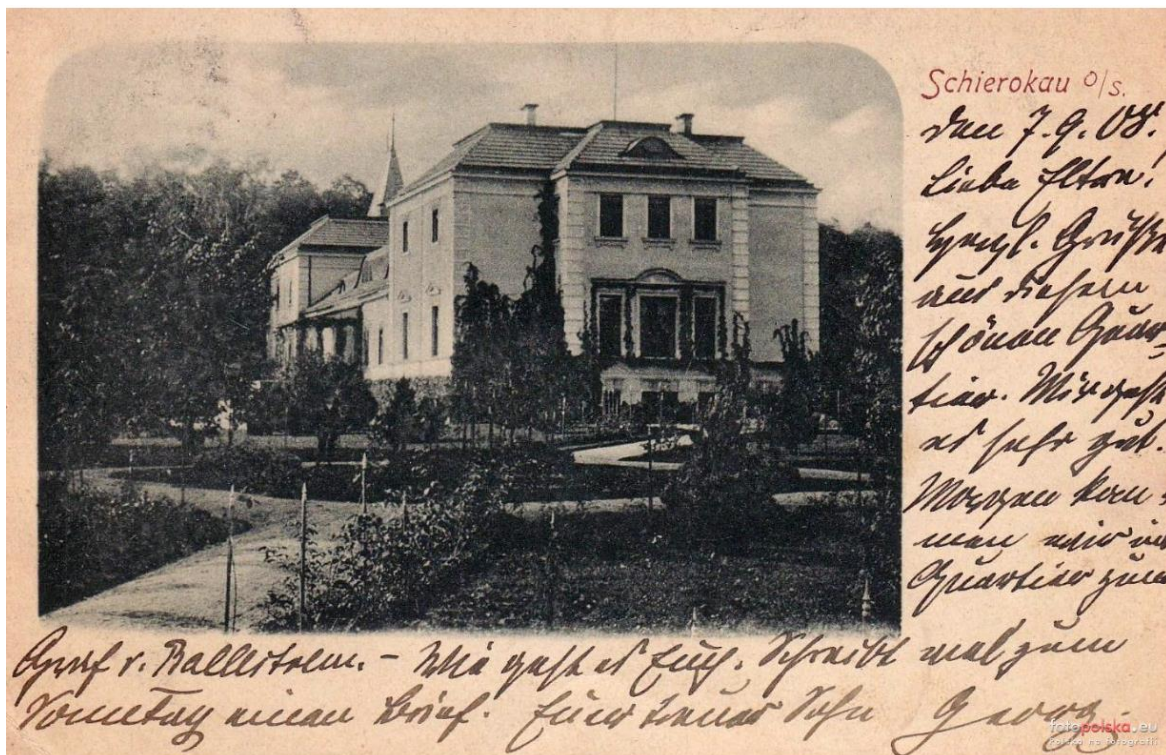 Schierokau O/S.
den 7.9.08.
Liebe Eltern!
Herzl. Grüße
aus diesem
schönen Quar-
tier. Mir geht
es sehr gut.
Morgen kom-
men wir in
Quartier zum
Graf v. Ballestrem. – Wie geht es Euch. Schreibt mal zum
Sonntag einen Brief. Euer treuer Sohn Georg.
fotopolska.eu
Polska na fotografii